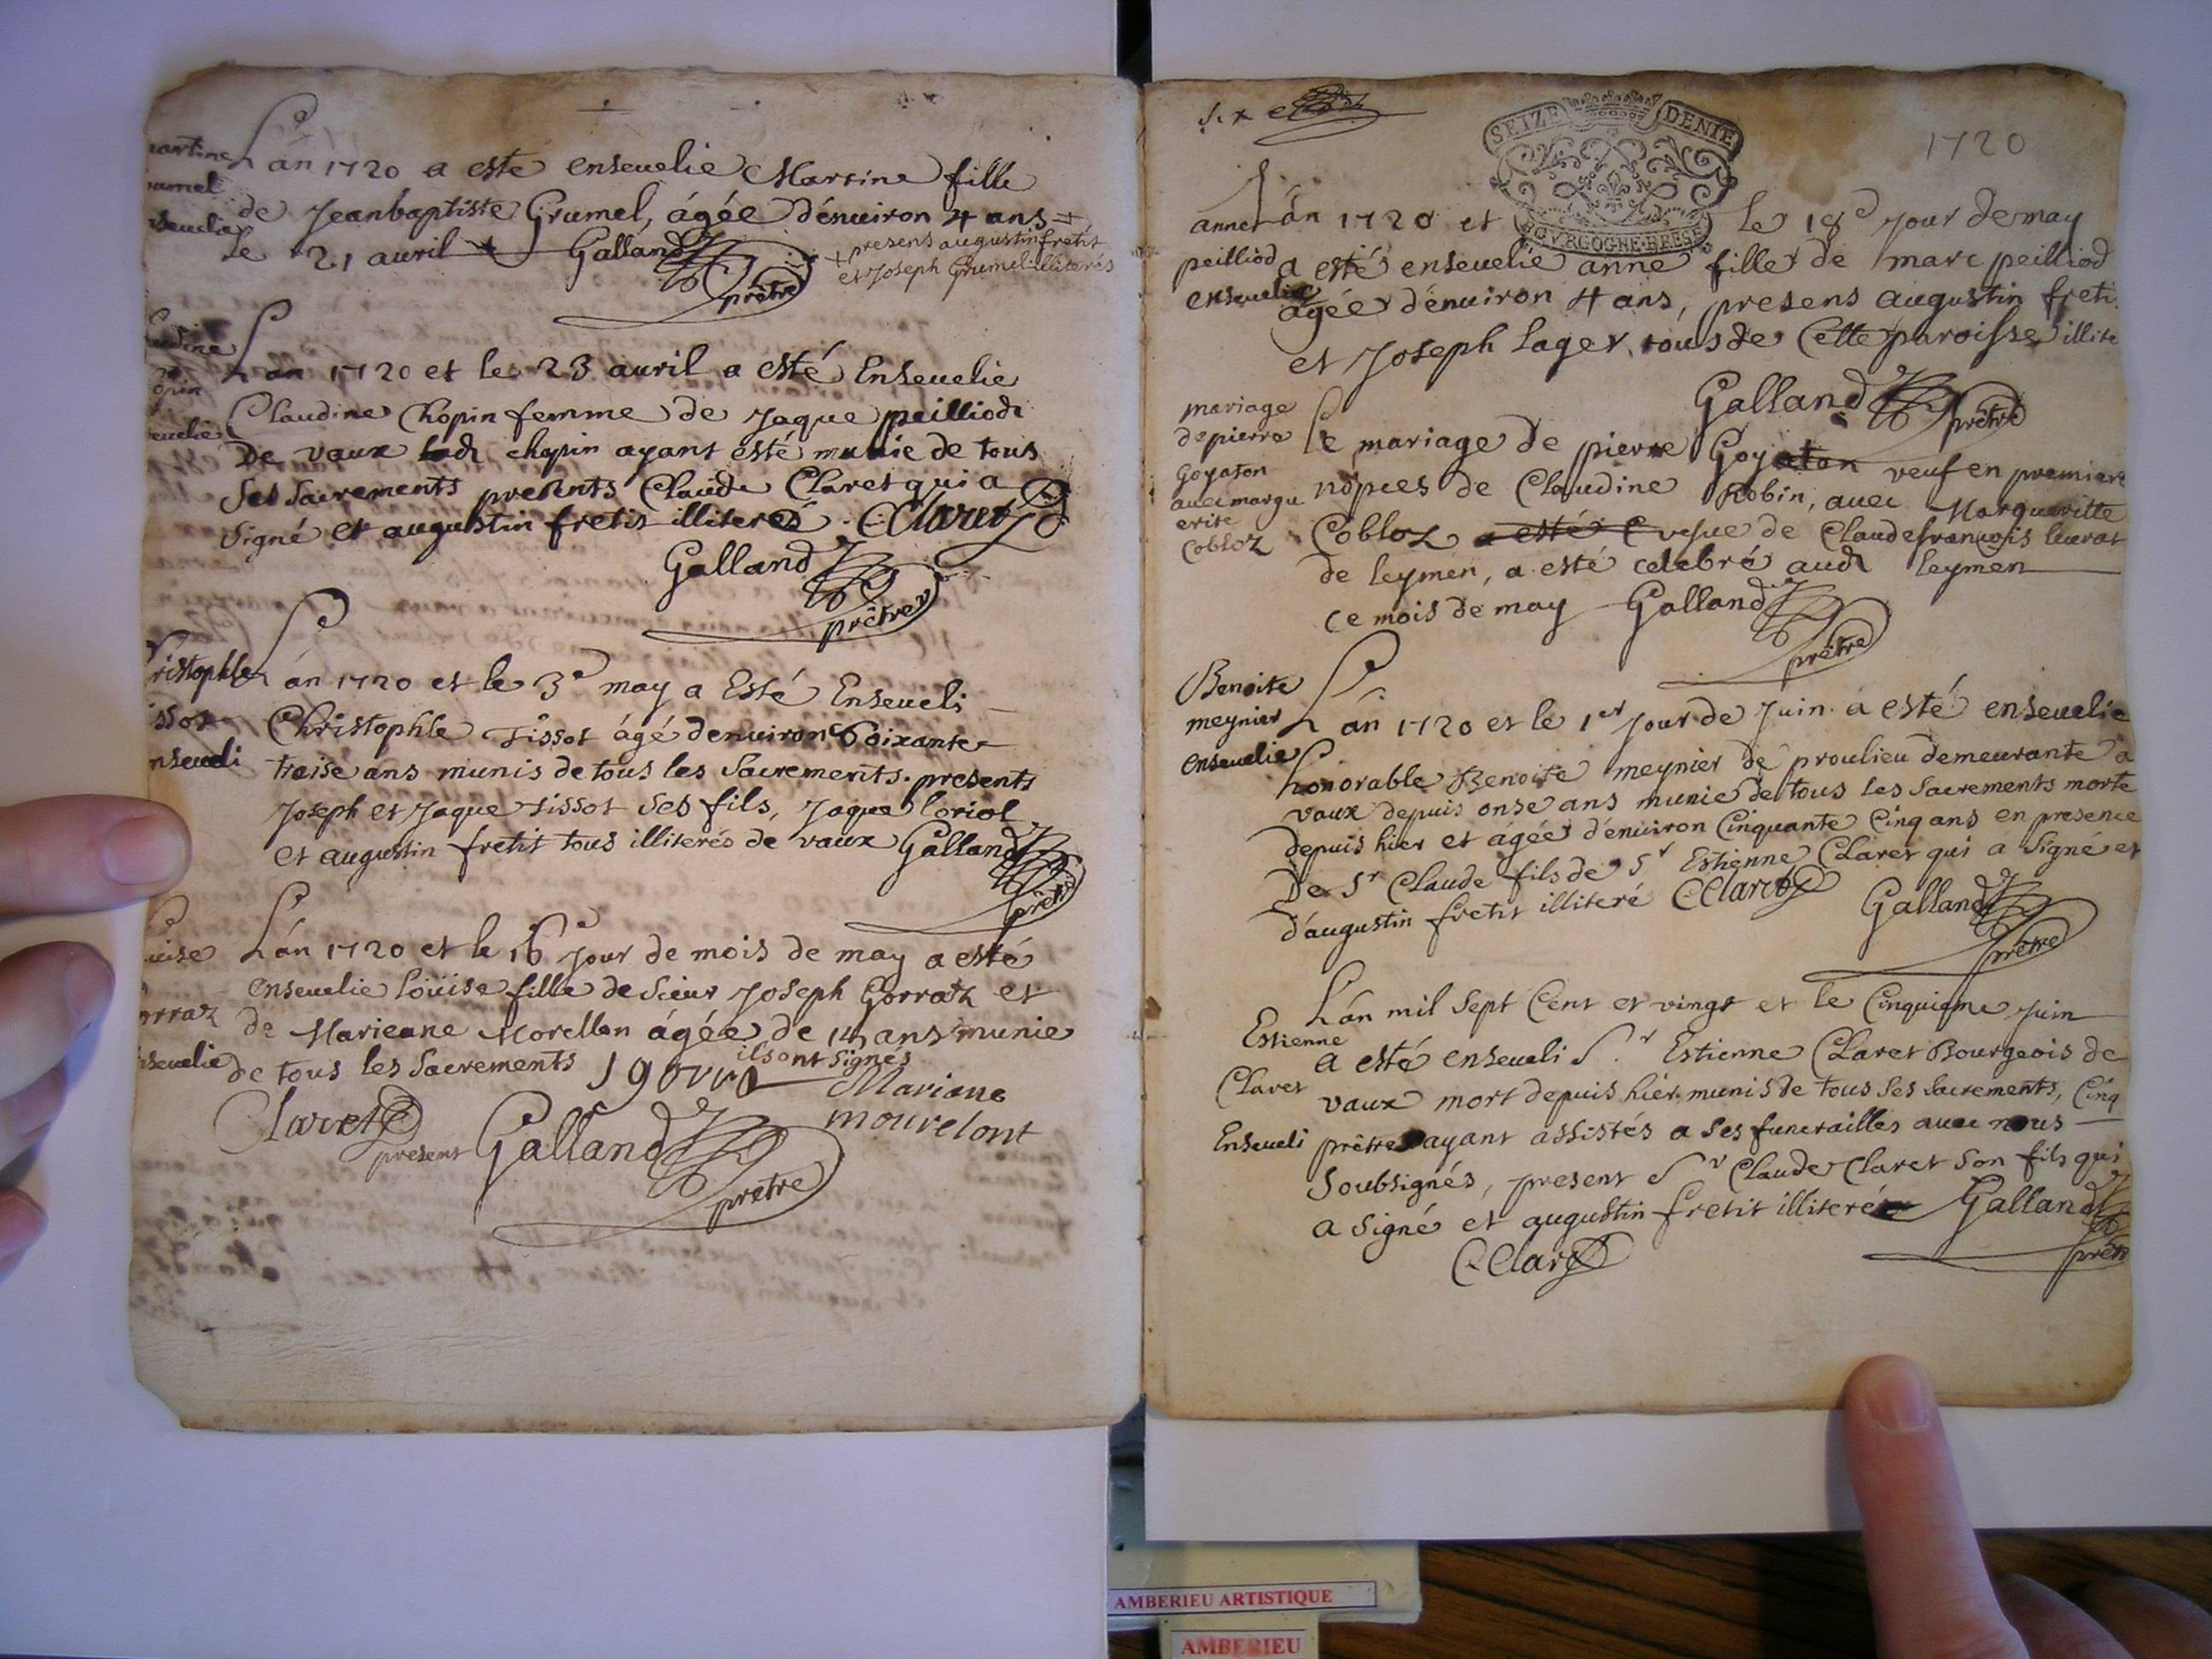 Martine
Grumel
ensevelie
L'an 1720 a esté ensevelie Martine fille
de Jeanbaptiste Grumel, ágée d'énuiron 4 ans +
le 21 auril Galland prêtre
+ presens augustin fretit
et Joseph Grumel illiterés
L'an 1720 et le 23 auril a esté Enseuelie
Claudine Chopin femme de Jaque peilliod
De vaux lad chopin ayant esté munie de tous
ses sacrements presents Claude Claret qui a
signé et augustin fretit illiteré CClaret
Galland
prêtre
L'an 1720 et le 3e may a Esté Enseueli
Christophle Tissot ágé denuiron Soixante
treise ans munis de tous les Sacrements. presents
Joseph et Jaque tissot ses fils, Jaque loriol
et augustin fretit tous illiterés de vaux Galland
prêtre
L'an 1720 et le 16 Jour de mois de may a esté
enseuelie loüise fille de Sieur Joseph Gorraz et
de Marieane Morellon ágée de 14 ans munie
de tous les Sacrements ils ont Signés
Mariane
mourelont
Claret
present Galland
prêtre
Six
SEIZE DENIE
BOVRGOGNE BRESSE
1720
anne
peilliod
enseuelie
L'an 1720 et le 18e Jour de may
a esté enseuelie anne fille de marc peilliod
ágée d'énuiron 4 ans, presens augustin freti
et Joseph lager, tous de Cette paroisse illite
Galland
prêtre
mariage
de pierre
Goyaton
auec margu
erite
Cobloz
le mariage de pierre Goyaton veuf en premiere
nopces de Claudine Robin, auec Margueritte
Cobloz a esté C vefue de Claudefrancois
de leymen, a esté celebré aud leymen
ce mois de may Galland
prêtre
Benoite
meynier
enseuelie
L'an 1720 et le 1er Jour de Juin a esté enseuelie
honorable Benoite meynier de proulieu demeurante a
vaux depuis onse ans munie de tous les Sacrements morte
depuis hier et agée d'énuiron Cinquante Cinq ans en presence
De Sr Claude fils de Sr Estienne Claret qui a Signé et
d'augustin fretit illiteré CClaret Galland
prêtre
Estienne
Claret
Enseueli
L'an mil Sept Cent et vingt et le Cinquieme Juin
a esté enseueli S.r Estienne Claret Bourgeois de
vaux mort depuis hier munis de tous ses Sacrements, Cinq
prêtre ayant assistés a ses funerailles auec nous
Soubsignés, present Sr Claude Claret Son fils qui
a Signé et augustin fretit illiteré Galland
prêtr
CClaret
AMBERIEU ARTISTIQUE
AMBERIEU